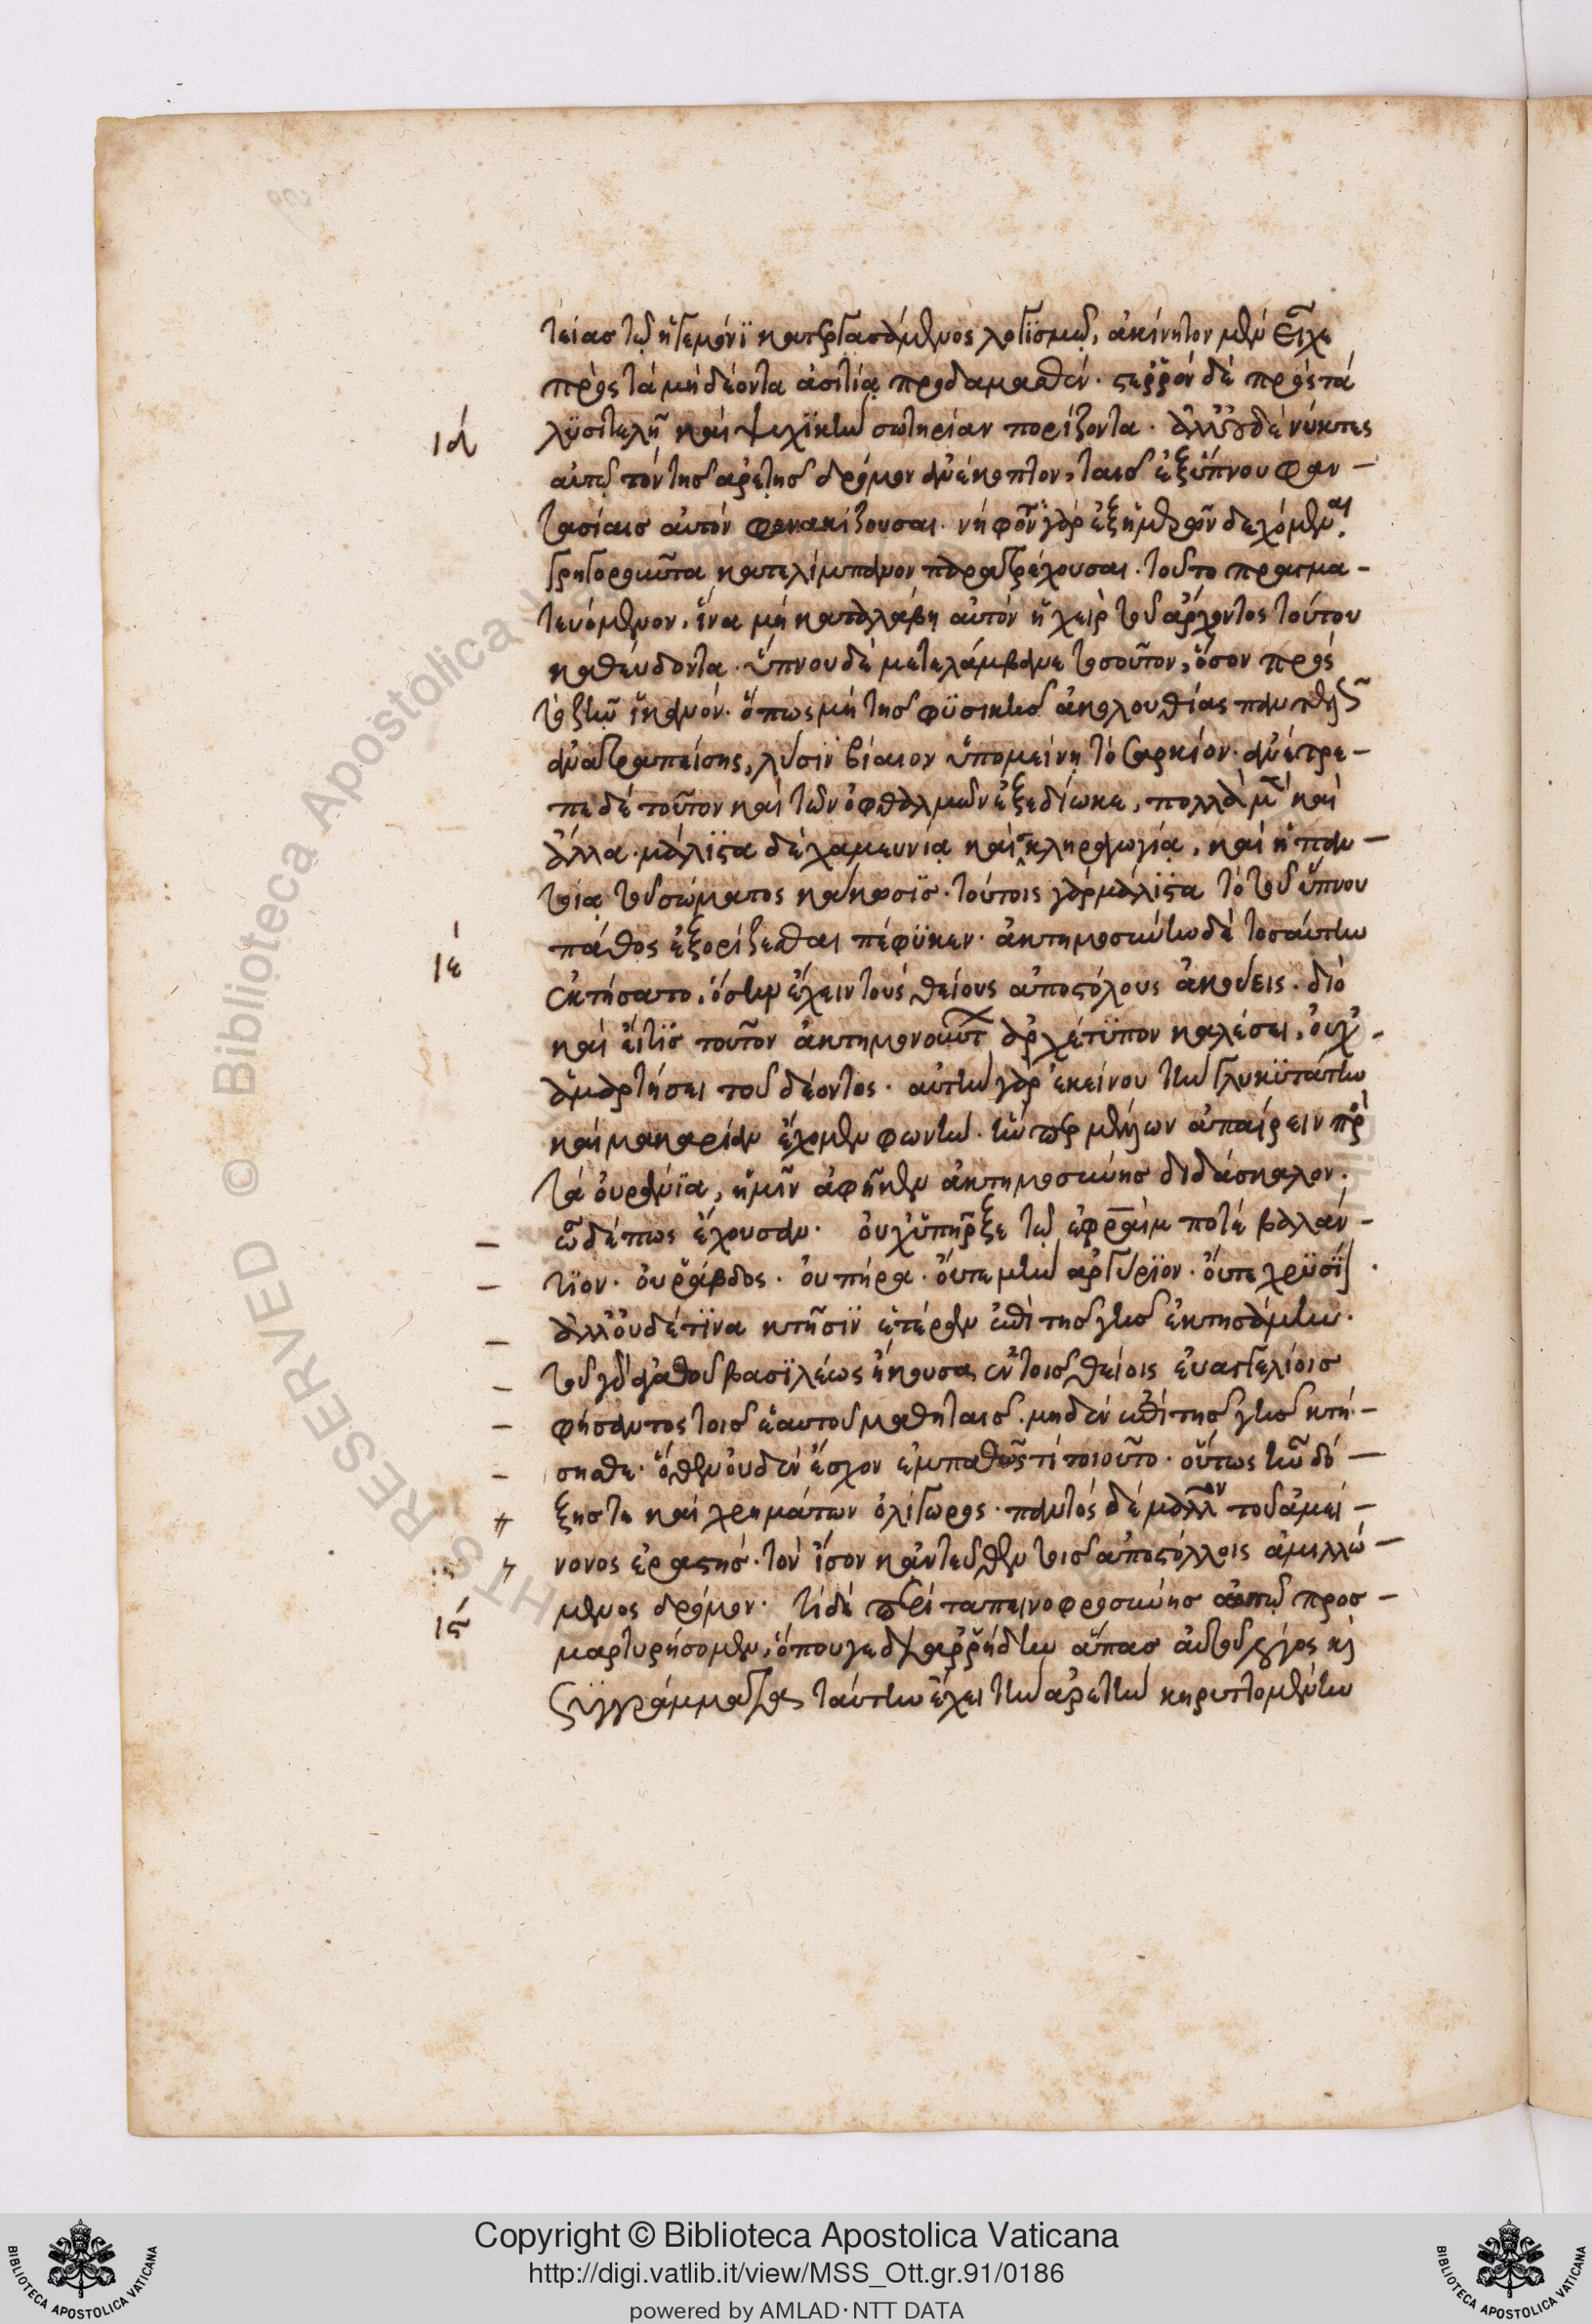 τείας τῷ ἡγεμόνι κατεργασάμενος λογισμῷ, ἀκίνητον μὲν εἶχε
πρὸς τὰ μὴ δέοντα ἀσιτίᾳ προδαμασθέν· στερρὸν δὲ πρὸς τὰ
ιδ λυσιτελῆ καὶ ψυχικὴν σωτηρίαν πορίζοντα. ἀλλ' οὐδὲ νύκτες
αὐτῷ τὸν τῆς ἀρετῆς δρόμον ἀνέκοπτον, ταῖς ἐξ ὕπνου φαν-
τασίαις αὐτὸν φενακίζουσαι. νήφοντα γὰρ ἐξ ἡμερῶν δεχόμεναι,
γρηγοροῦντα κατελίμπανον παρατρέχουσαι. τοῦτο πραγμα-
τευόμενον, ἵνα μὴ καταλάβῃ αὐτὸν ἡ χεὶρ τοῦ ἄρχοντος τούτου
καθεύδοντα. ὕπνου δὲ μετελάμβανε τοσοῦτον, ὅσον πρὸς
τὸ ζῆν ἱκανόν. ὅπως μὴ τῆς φυσικῆς ἀκολουθίας παντελῶς
ἀνατραπείσης, λύσιν βίαιον ὑπομείνῃ τὸ σαρκίον. ἀνέτρε-
πε δὲ τοῦτον καὶ τῶν ὀφθαλμῶν ἐξεδίωκε, πολλὰ μὲν καὶ
ἄλλα. μάλιστα δὲ χαμευνία καὶ σκληραγωγία, καὶ ἡ παν-
τοία τοῦ σώματος κάκωσις. τούτοις γὰρ μάλιστα τὸ τοῦ ὕπνου
ιε πάθος ἐξορίζεσθαι πέφυκεν. ἀκτημοσύνην δὲ τοσαύτην
ἐκτήσατο, ὅσην ἔχειν τοὺς θείους ἀποστόλους ἀκούεις. διὸ
καὶ εἴ τις τοῦτον ἀκτημονούντων ἀρχέτυπον καλέσει, οὐχ
ἁμαρτήσει τοῦ δέοντος. αὐτὴν γὰρ ἐκείνου τὴν γλυκυτάτην
καὶ μακαρίαν ἔχομεν φωνήν. ἥνπερ μέλλων ἀπαίρειν πρὸς
τὰ οὐράνια, ἡμῖν ἀφῆκεν ἀκτημοσύνης διδάσκαλον.
ὧδέ πως ἔχουσαν. οὐχ ὑπῆρξε τῷ ἐφραΐμ ποτὲ βαλάν-
τιον. οὐ ῥάβδος. οὐ πήρα. οὔτε μὴν ἀργύριον. οὔτε χρυσίον.
ἀλλ' οὐδέ τινα κτῆσιν ἑτέραν ἐπὶ τῆς γῆς ἐκτησάμην.
τοῦ γὰρ ἀγαθοῦ βασιλέως ἤκουσα ἐν τοῖς θείοις εὐαγγελίοις
φήσαντος τοῖς ἑαυτοῦ μαθηταῖς. μηδὲν ἐπὶ τῆς γῆς κτή-
σησθε. ὅθεν οὐδὲν ἔσχον ἐμπαθῶς τι τοιοῦτο. οὕτως ἦν δό-
ξης τε καὶ χρημάτων ὀλίγωρος. παντὸς δὲ μᾶλλον τοῦ ἀμεί-
νονος ἐραστής. τὸν ἴσον κἀντεῦθεν τοῖς ἀποστόλοις ἁμιλλώ-
ις μενος δρόμον. τί δὲ περὶ ταπεινοφροσύνης αὐτῷ προσ-
μαρτυρήσομεν, ὅπου γε διαρρήδην ἅπας αὐτοῦ λόγος καὶ
συγγράμματα ταύτην ἔχει τὴν ἀρετὴν κηρυττομένην
Copyright © Biblioteca Apostolica Vaticana
http://digi.vatlib.it/view/MSS_Ott.gr.91/0186
powered by AMLAD·NTT DATA
BIBLIOTECA APOSTOLICA VATICANA
BIBLIOTECA APOSTOLICA VATICANA